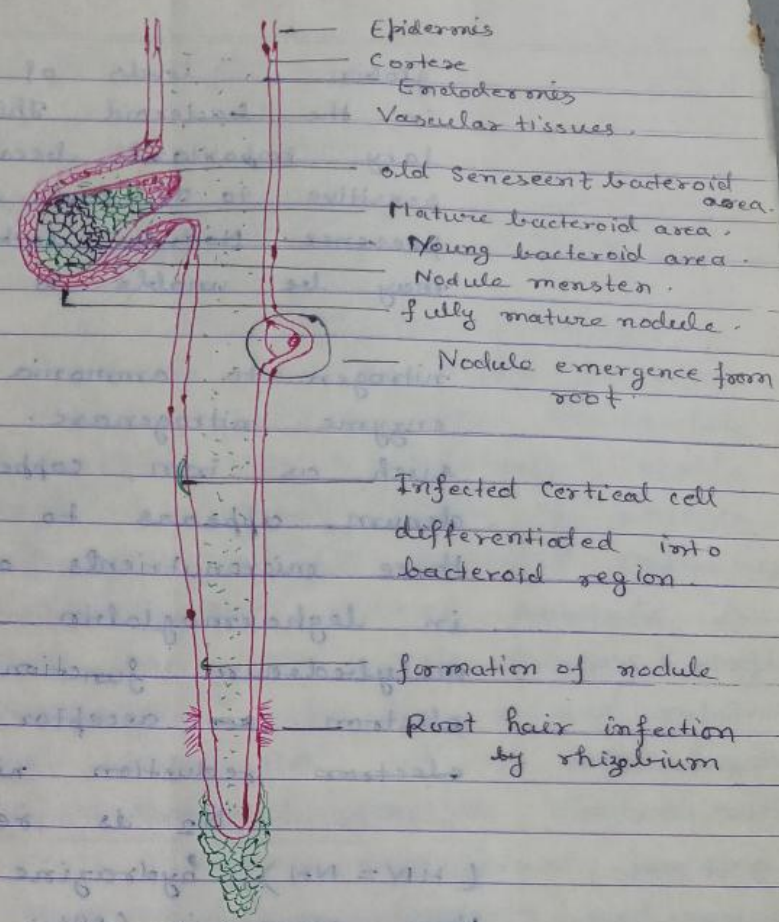 Epidermis
Cortex
Endodermis
Vascular tissues.
old Seneseent bacteroid
area.
Mature bacteroid area.
Young bacteroid area.
Nodule mensten.
fully mature nodule.
Nodule emergence from
root.
Infected Cortical cell
differentiaded into
bacteroid region.
formation of nodule
Root hair infection
by rhizobium